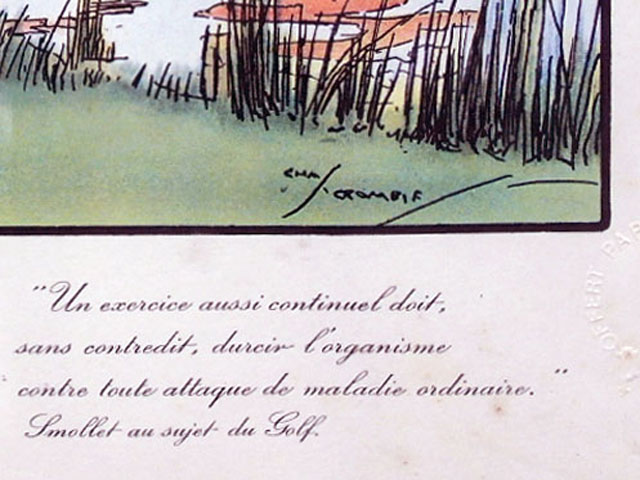 CHAS. CROMBIE
"Un exercice aussi continuel doit,
sans contredit, durcir l'organisme
contre toute attaque de maladie ordinaire."
Smollet au sujet du Golf.
OFFERT PAR